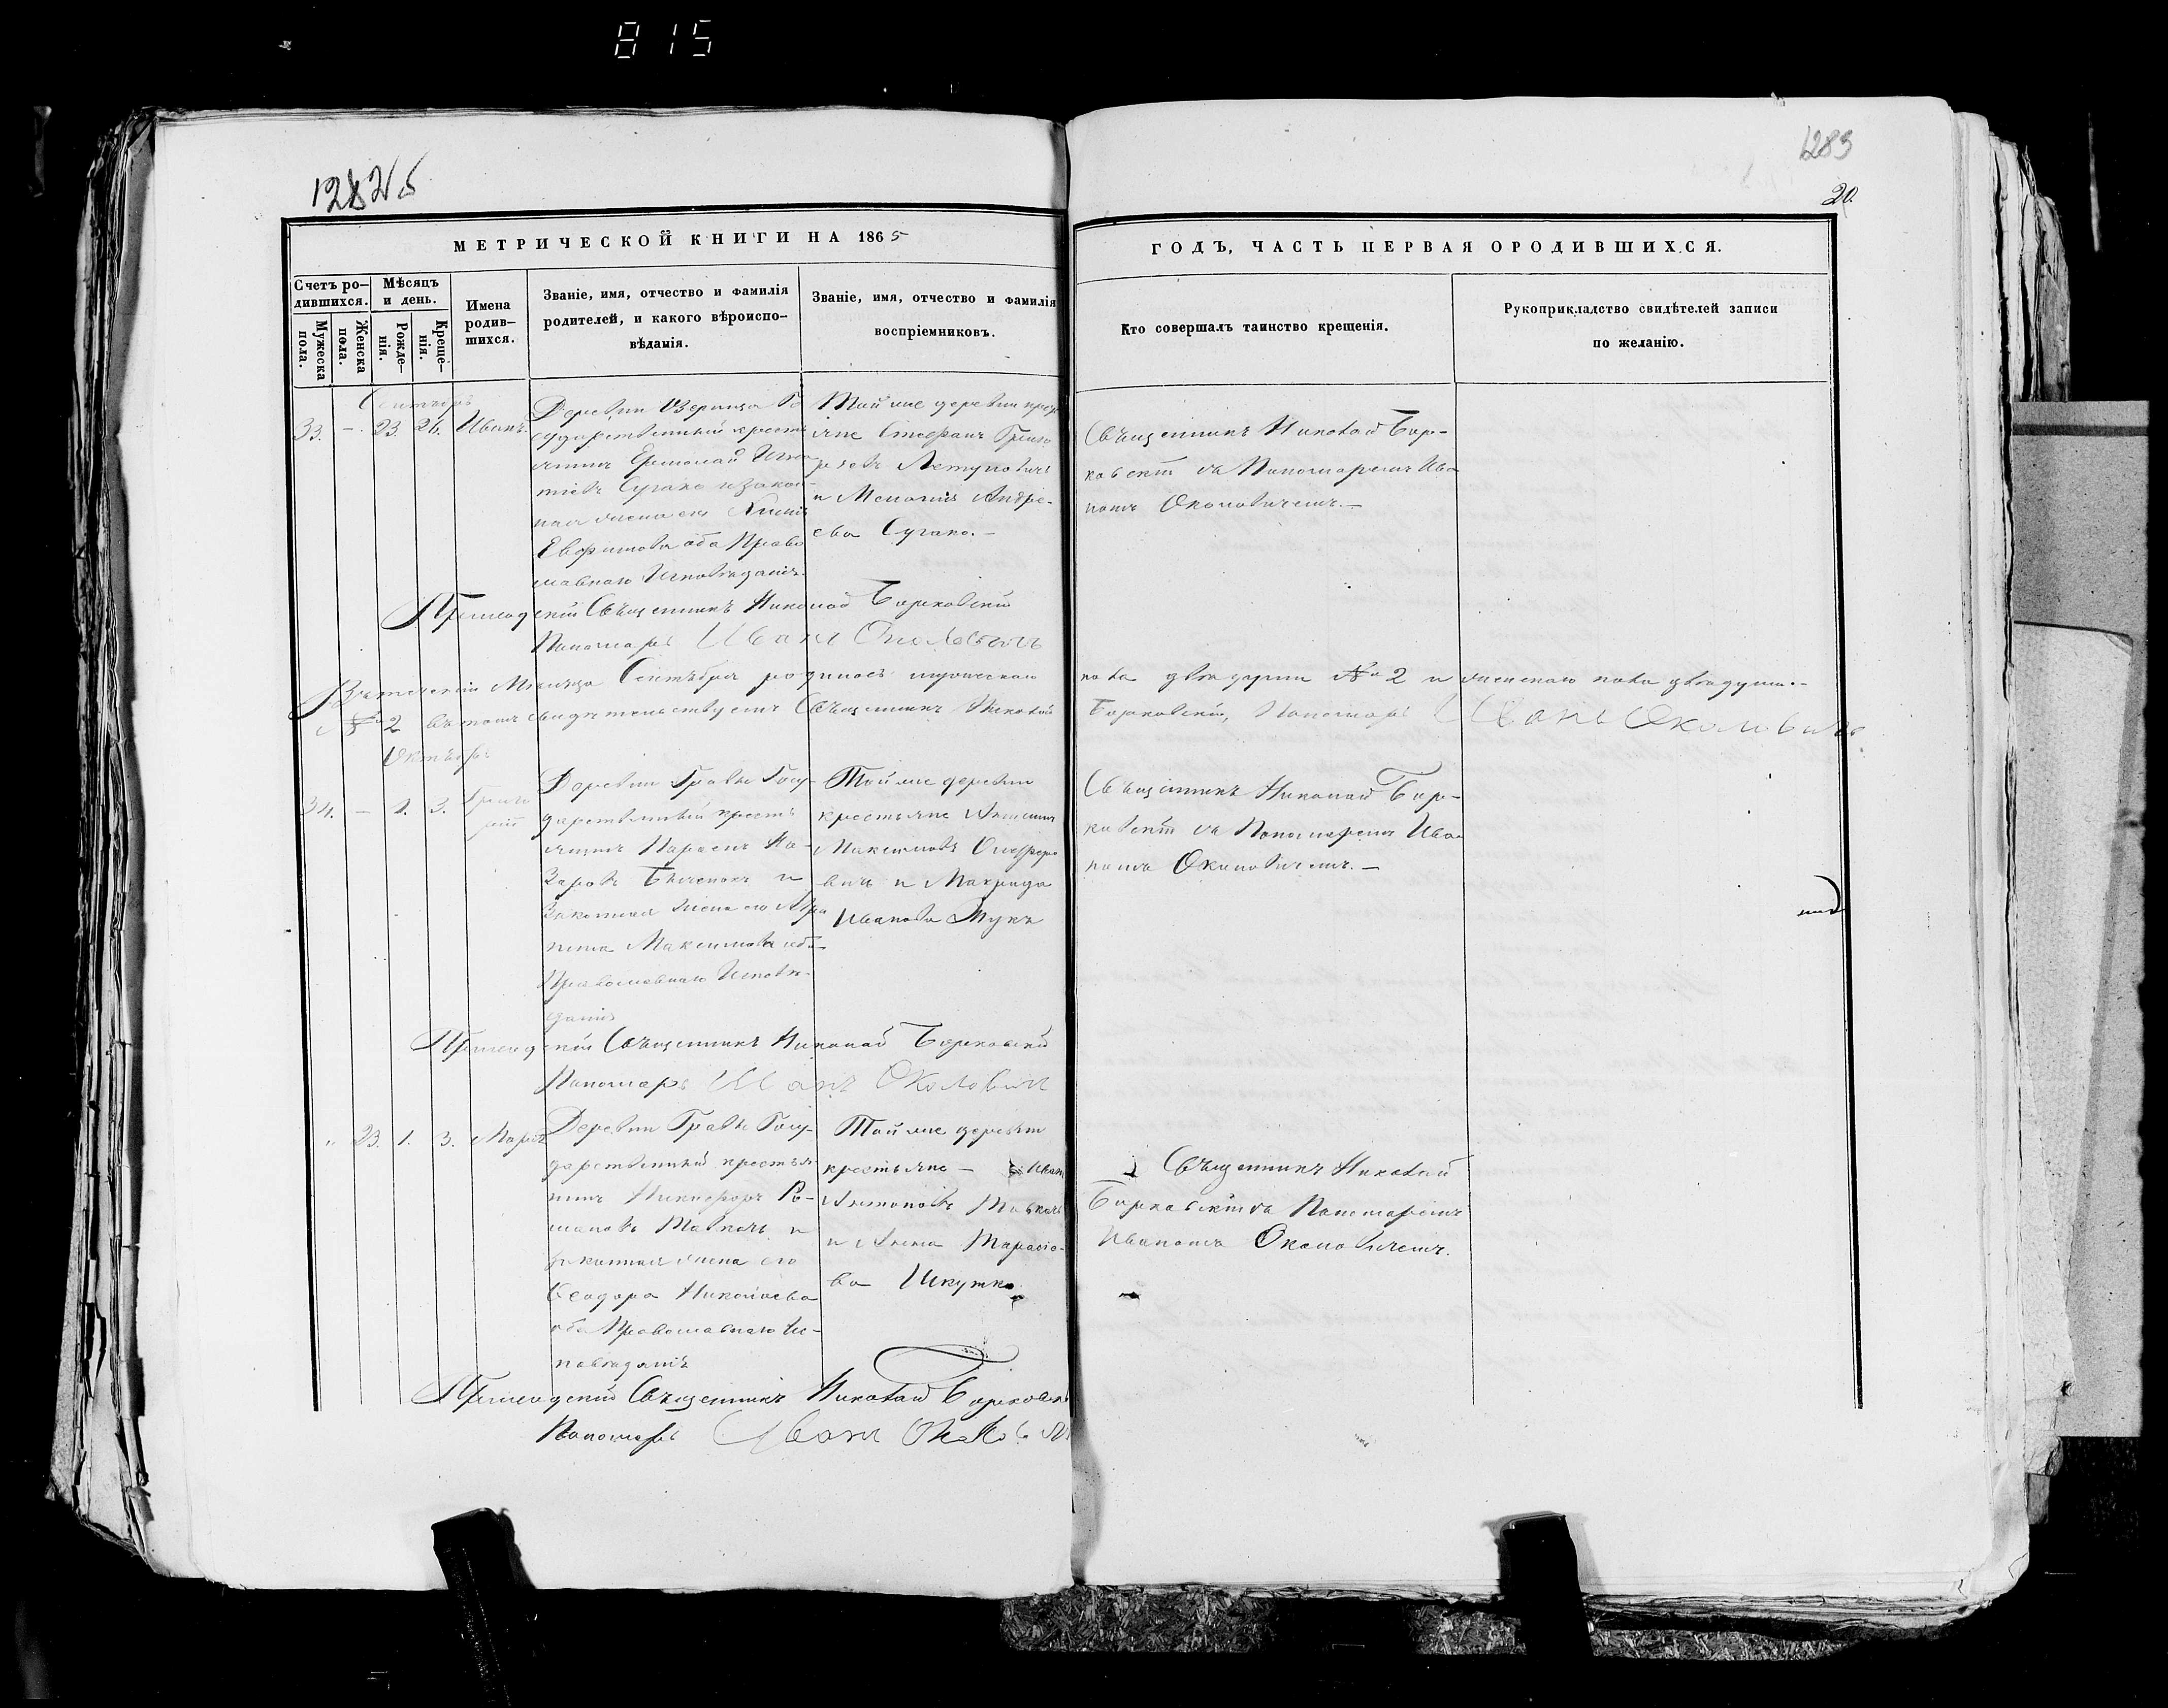 815
1283
20.
МЕТРИЧЕСКОЙ КНИГИ НА 1865
ГОДЪ, ЧАСТЬ ПЕРВАЯ О РОДИВШИХСЯ.
Счетъ ро-
дившихся.
Мужеска
пола.
Женска
пола.
Мѣсяцъ
и день.
Рожде-
нія.
Креще-
нія.
Имена
родив-
шихся.
Званіе, имя, отчество и фамилія
родителей, и какого вѣроиспо-
вѣданія.
Званіе, имя, отчество и фамилія
воспріемниковъ.
Кто совершалъ таинство крещенія.
Рукоприкладство свидѣтелей записи
по желанію.
Сентябрь
33. – 23. 26. Иванъ
Деревни Озерица Го
сударственный кресть
янинъ Ермолай Игна
тіевъ Сугако и закон-
ная жена его
Евфимова оба Право
славнаго Исповѣданія.
Той же деревни крест
яне Стефанъ Григо
рьевъ
и Меланія Андре-
ева Сугако.–
Священникъ Николай Бор-
ковскій съ Пономаремъ Ива
номъ Околовичемъ.–
Приходскій Священникъ Николай Борковскій
Пономарь Иванъ Околовичъ
Въ теченіи Мѣсяца Сентября родилось мужескаго
пола двѣ души № 2 и женскаго пола двѣ души.–
№ 2 въ томъ свидѣтельствуемъ Священникъ Николай
Борковскій, Пономарь Иванъ Околовичъ
Октябрь
34. – 1. 3. Григо
рій
Деревни Гравк Госу-
дарственный кресть
янинъ
Заровъ и
Законная жена его Агра
пина Максимова оба
Православнаго Исповѣ-
данія
Той же деревни
крестьяне
Максимовъ
вичъ и Макрида
Иванова Жукъ
Священникъ Николай Бор-
ковскій съ Пономаремъ Ива
номъ Околовичемъ.–
Приходскій Священникъ Николай Борковскій
Пономарь Иванъ Околовичъ
„ 23. 1. 3. Марія
Деревни Гравк Госу-
дарственный крестья
нинъ Никифоръ Ро-
мановъ и
законная жена его
Ѳеодора Николаева
оба Православнаго Ис-
повѣданія
Той же деревни
крестьяне – Иванъ
Антоновъ
и Анна Тарасіе-
ва Шкутко
Священникъ Николай
Борковскій съ Пономаремъ
Иваномъ Околовичемъ.
Приходскій Священникъ Николай Борковскі
Пономарь Иванъ Околович